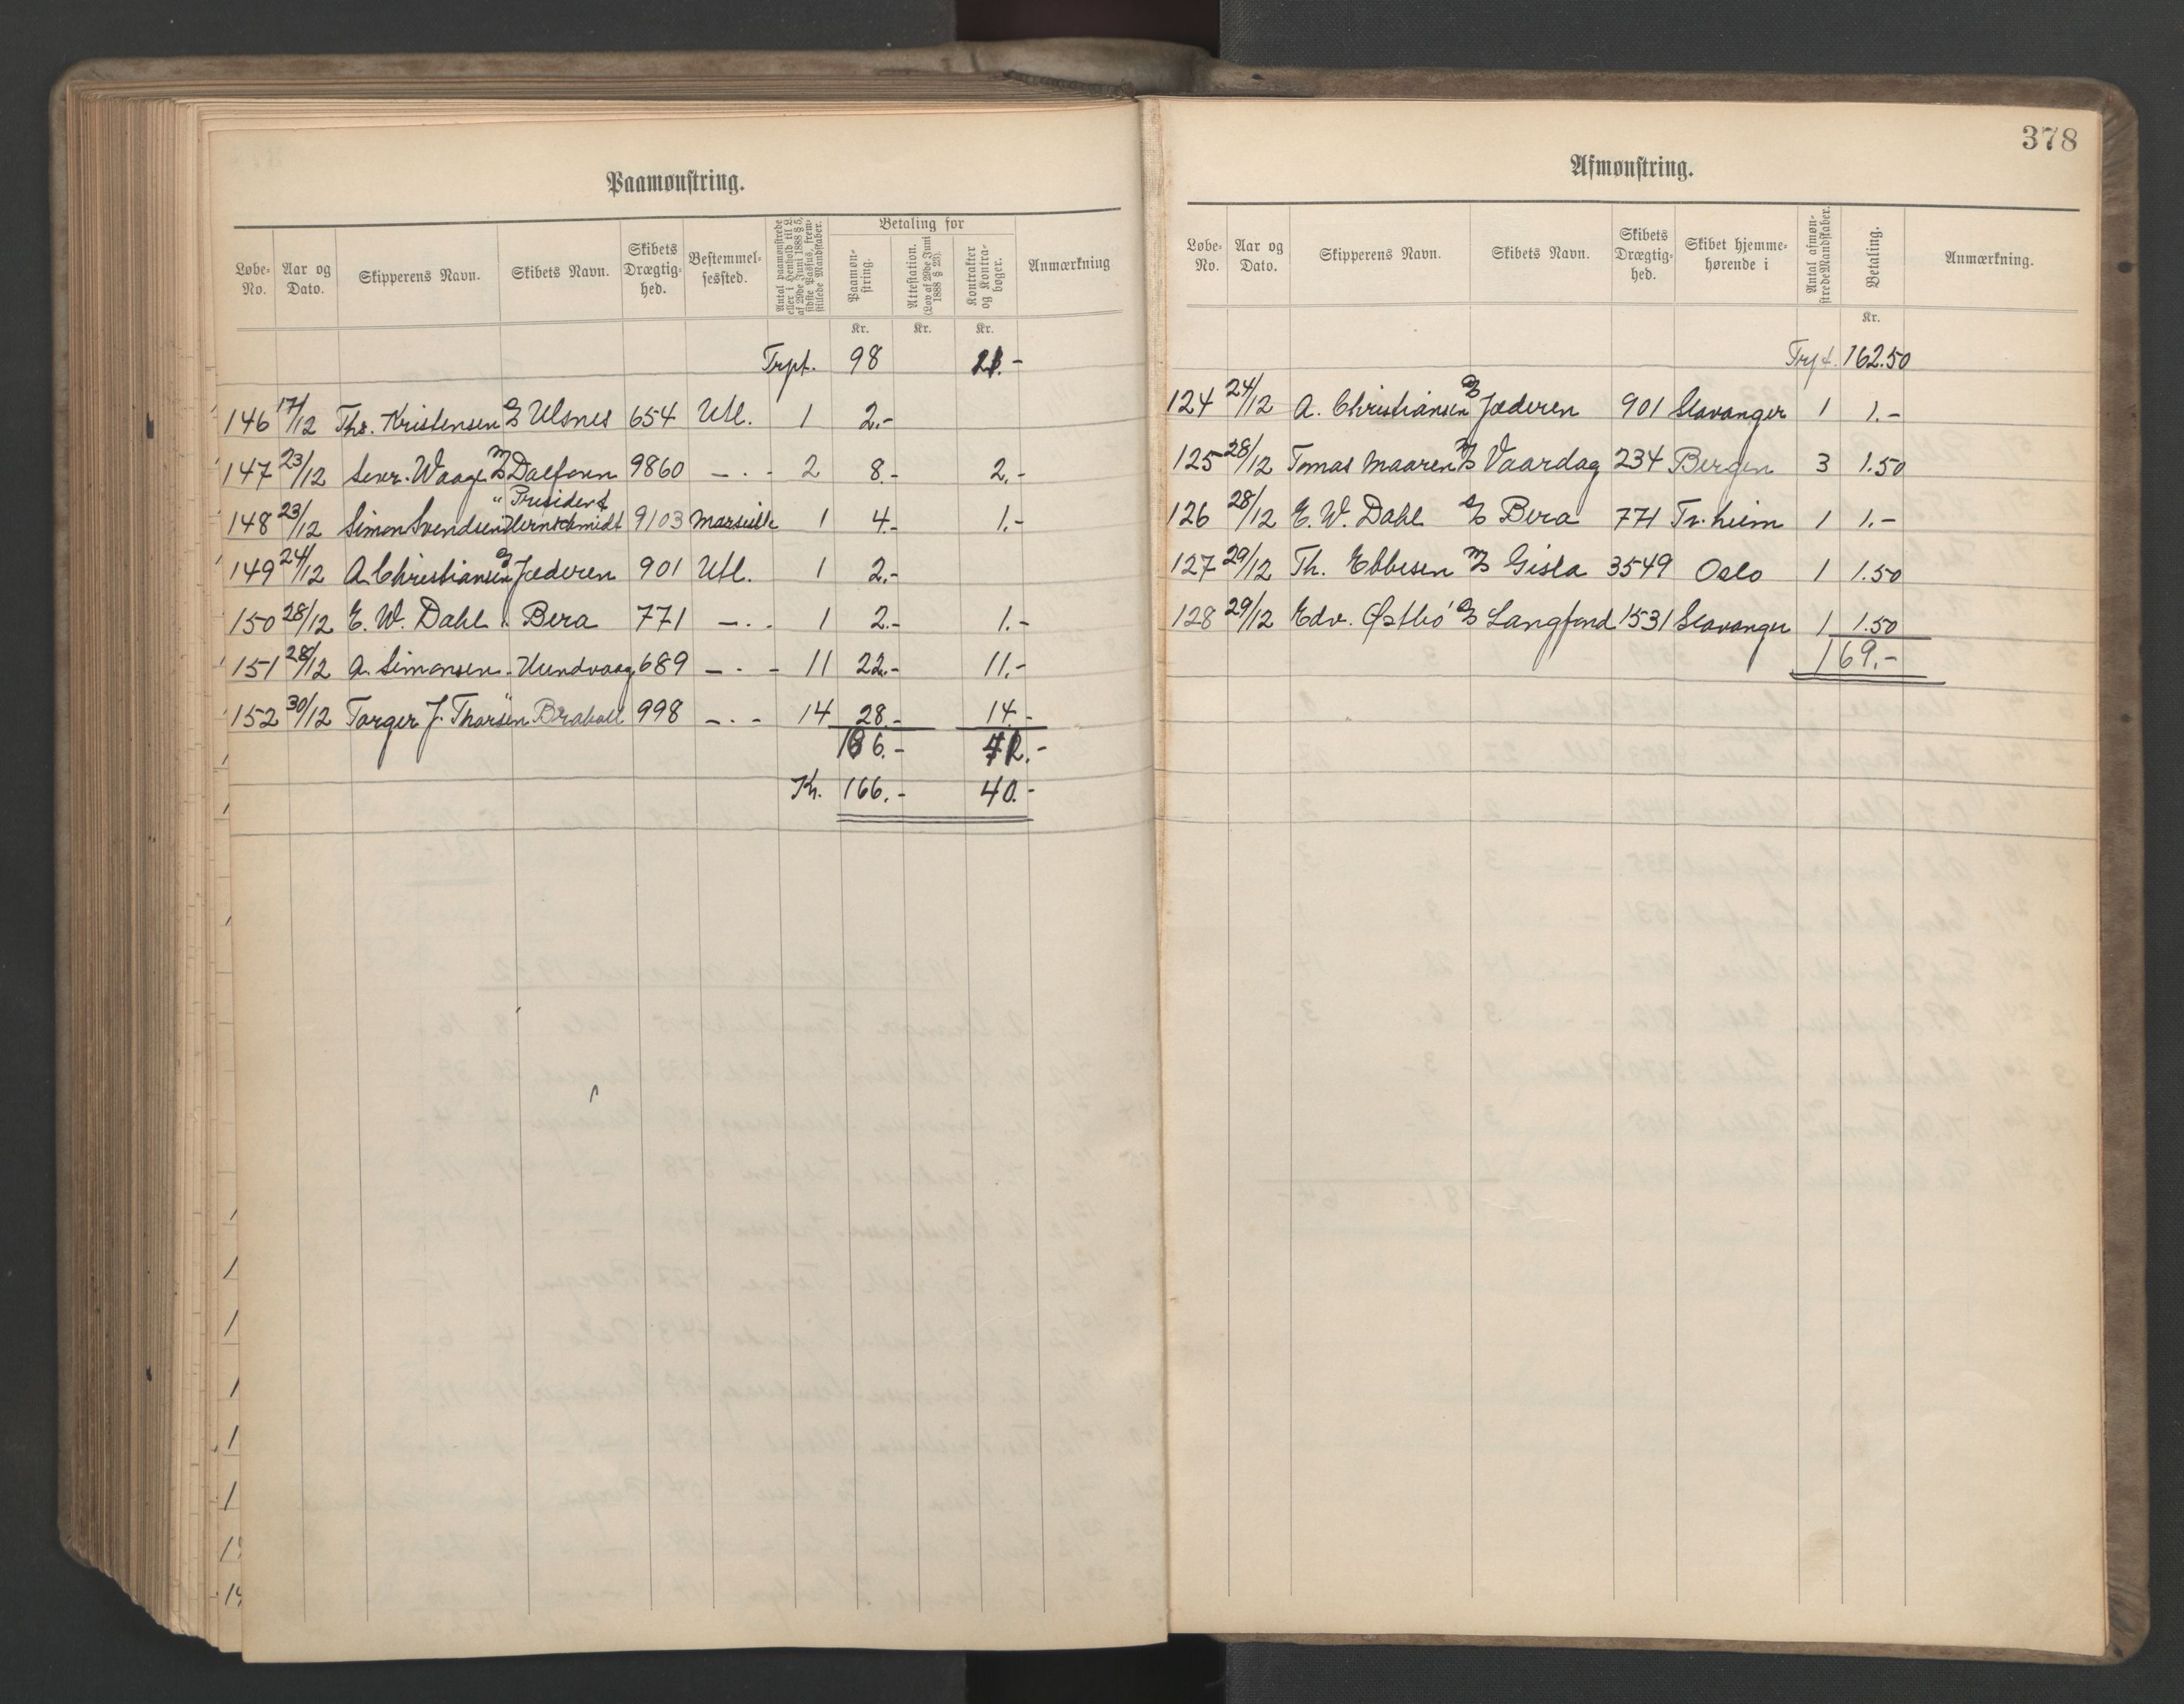 Paamønstring.
Løbe-No. Aar og Dato. Skipperens Navn. Skibets Navn. Skibets Drægtig-hed. Bestemmel-sessted. Antal paamønstrede eller i Henhold til L. af 29de Juni 1888 § 5, sidste Passus, frem-stillede Mandskaber. Betaling for Paamøn-string. Attestation. (Lov af 29de Juni 1888 § 23). Kontrakter og Kontra-bøger. Anmærkning
Kr. Kr. Kr.
Trpt. 98 21.-
146 17/12 Ths. Kristensen D/S Ulsnes 654 Utl. 1 2.-
147 23/12 Sevr. Waage M/S Dalfonn 9860 — . - 2 8.- 2.-
148 23/12 Simon Svendsen " President Hernschmidt 9103 Marseille 1 4.- 1.-
149 24/12 A. Christiansen D/S Jæderen 901 Utl. 1 2.-
150 28/12 E. W. Dahl " Bera 771 — . - 1 2.- 1.-
151 28/12 A. Simonsen " Hundvaag 689 — . - 11 22.- 11.-
152 30/12 Torger J. Thorsen " Braball 998 — . - 14 28.- 14.-
Kr. 166.- 40.-
378
Afmønstring.
Løbe-No. Aar og Dato. Skipperens Navn. Skibets Navn. Skibets Drægtig-hed. Skibet hjemme-hørende i Antal afmøn-strede Mandskaber. Betaling. Anmærkning.
Kr.
Trpt. 162.50
124 24/12 A. Christiansen D/S Jæderen 901 Stavanger 1 1.-
125 28/12 Tomas Maaren M/S Vaardag 234 Bergen 3 1.50
126 28/12 E. W. Dahl D/S Bera 771 Tr.heim 1 1.-
127 29/12 Th. Ebbesen M/S Gisla 3549 Oslo 1 1.50
128 29/12 Edv. Østbö D/S Langfond 1531 Stavanger 1 1.50
169.-